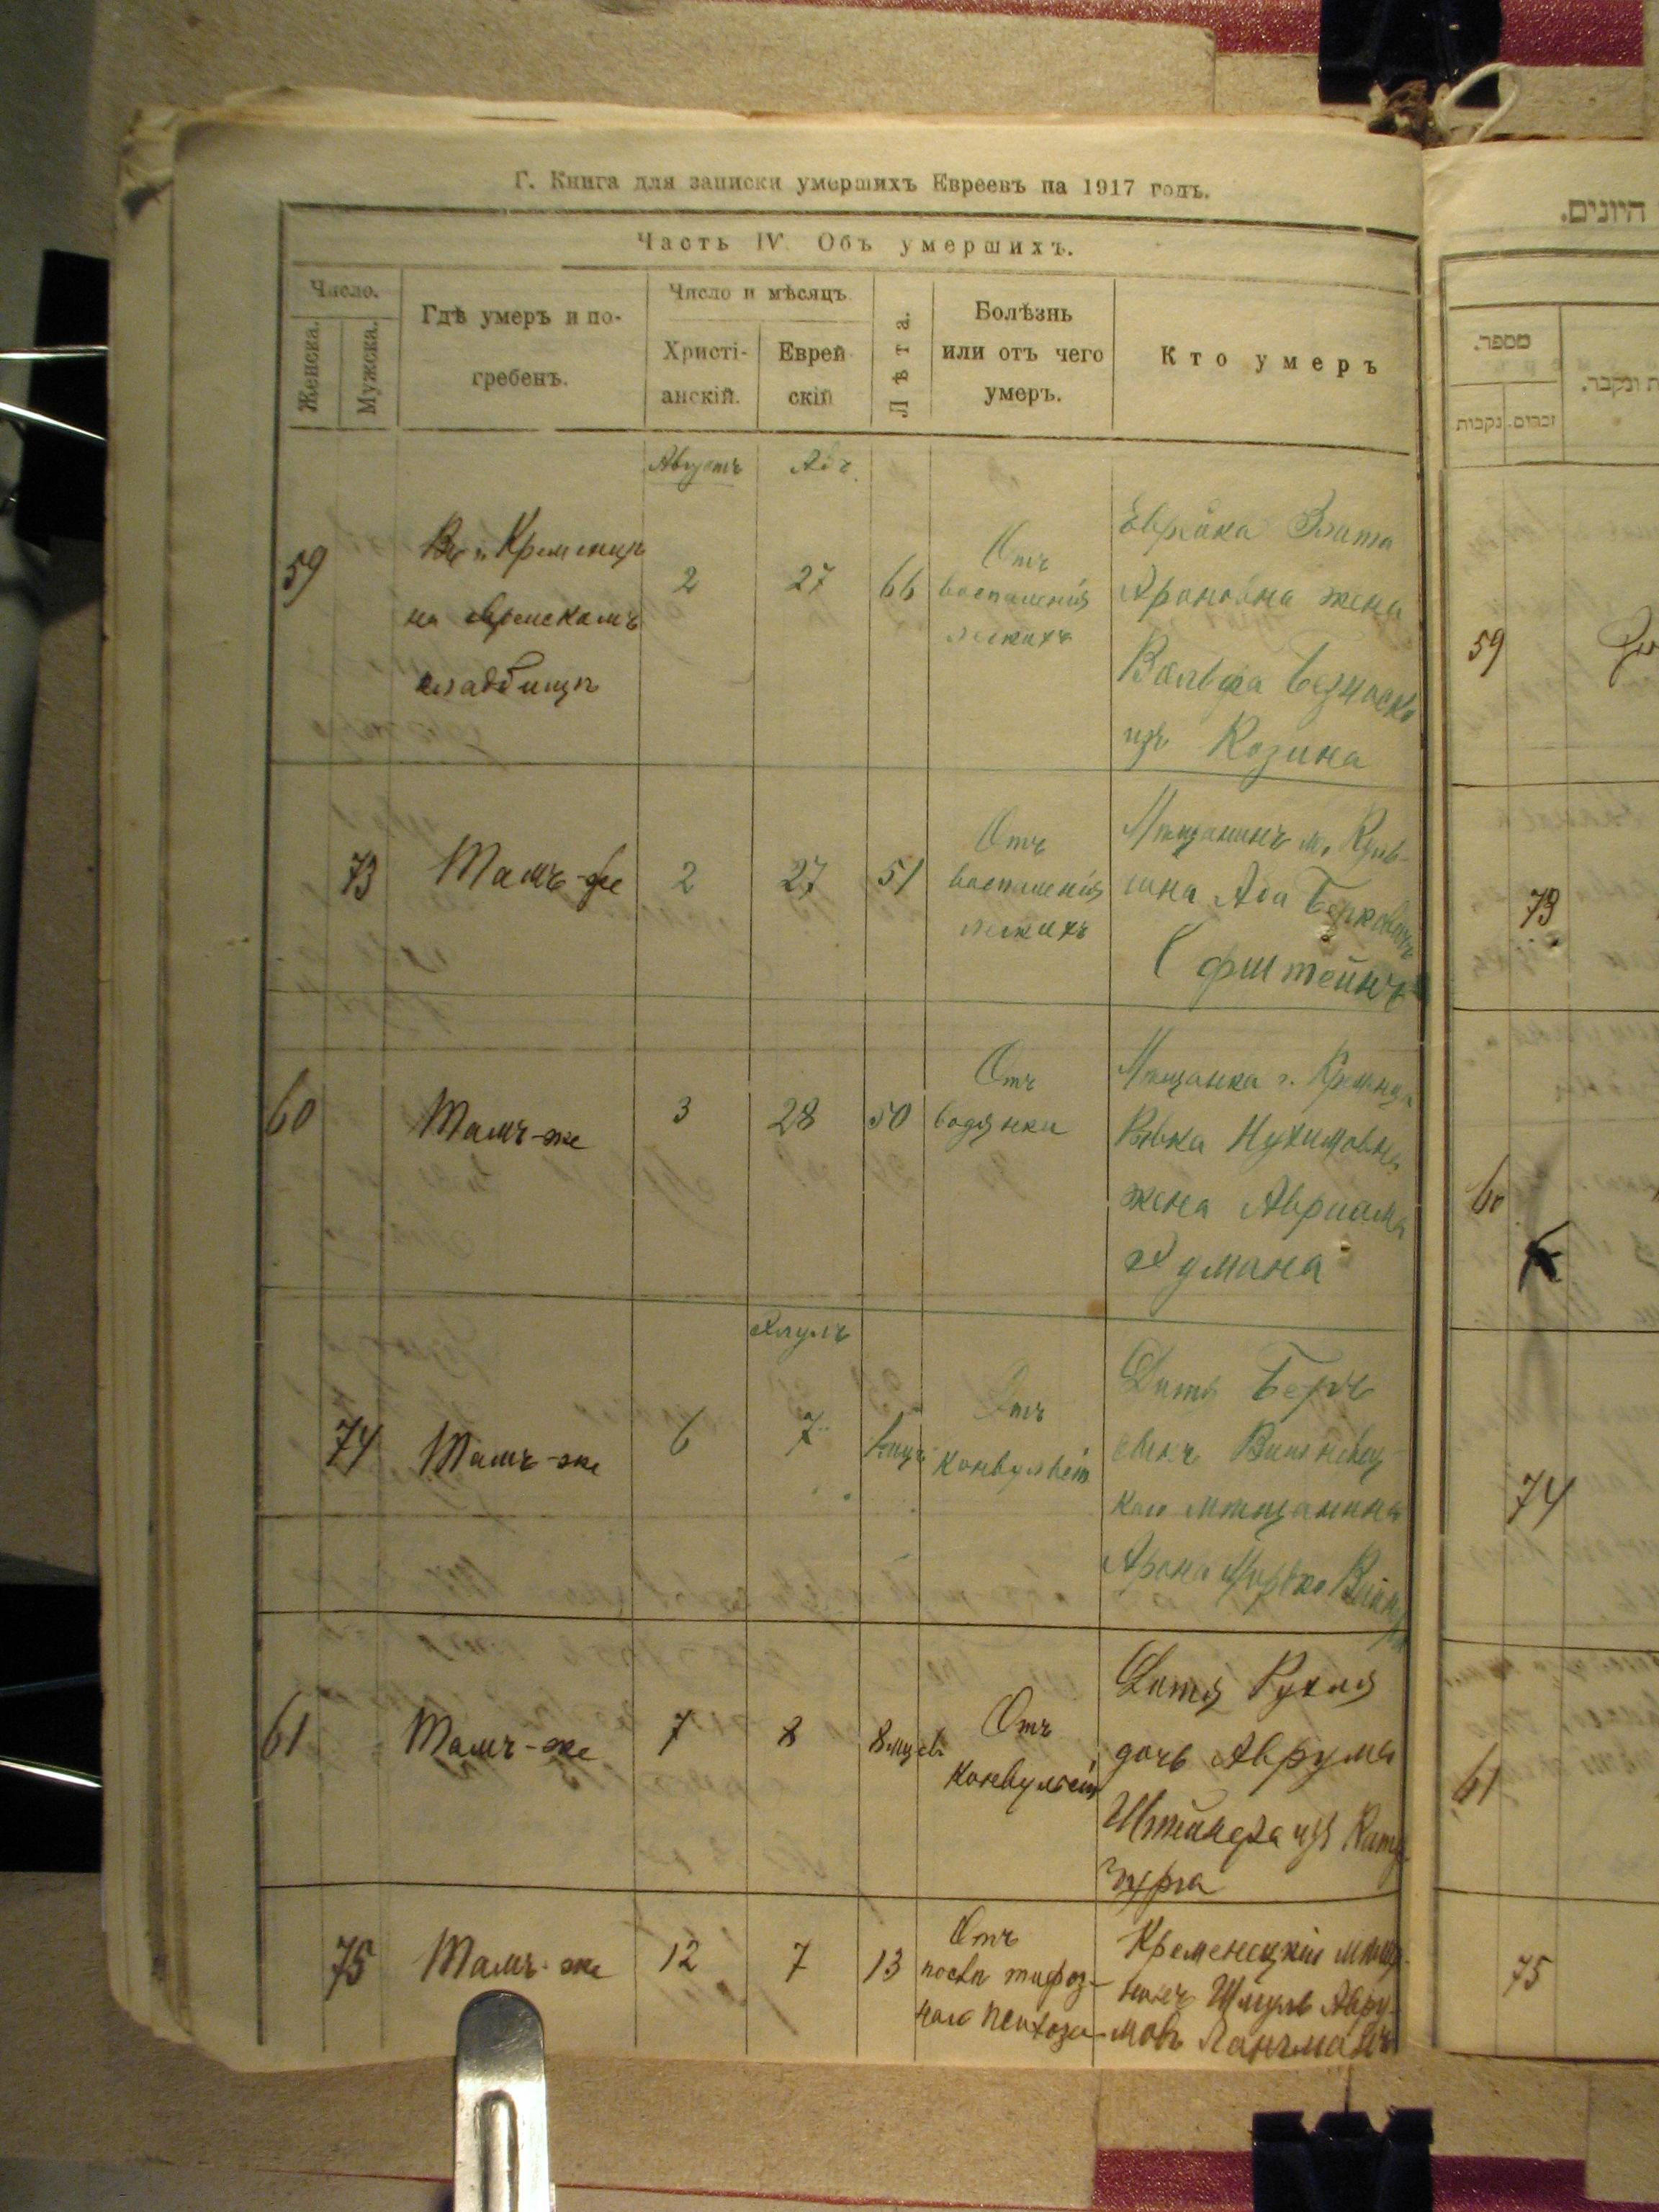 Г. Книга для записки умершихъ Евреевъ на 1917 годъ.
Часть IV. Объ умершихъ.
Число.
Женска.
Мужска.
Гдѣ умеръ и по-
гребенъ.
Число и мѣсяцъ
Христі-
анскій.
Еврей
скій
Лѣта.
Болѣзнь
или отъ чего
умеръ.
Кто умеръ
Августъ
Абъ
59
Въ г. Кременцѣ
на еврейскомъ
кладбищѣ
2
27
66
Отъ
воспаленія
легкихъ
Еврейка Злата
Ароновна жена
Вольфа
изъ Козина
73
Тамъ-же
2
27
51
Отъ
воспаленія
легкихъ
Мѣщанинъ м.
Берковичъ
60
Тамъ-же
3
28
50
Отъ
водянки
Мѣщанка г. Кременца
Ривка Нухимовна
жена Авраама
Элулъ
74
Тамъ-же
6
7
Отъ
конвульсій
Дитя Беръ
сынъ Вишневец-
каго мѣщанина
Арона
61
Тамъ-же
7
8
8 мѣсяц.
Отъ
конвульсій
Дитя Рухля
дочь Аврума
изъ
75
Тамъ-же
12
7
13
Отъ
послѣ тифоз-
наго психоза
Кременецкій мѣща-
нинъ Шмуль Авру-
мовъ
היונים.
מספר.
ונקבר.
נקבות
זכרים
59
73
60
74
61
75